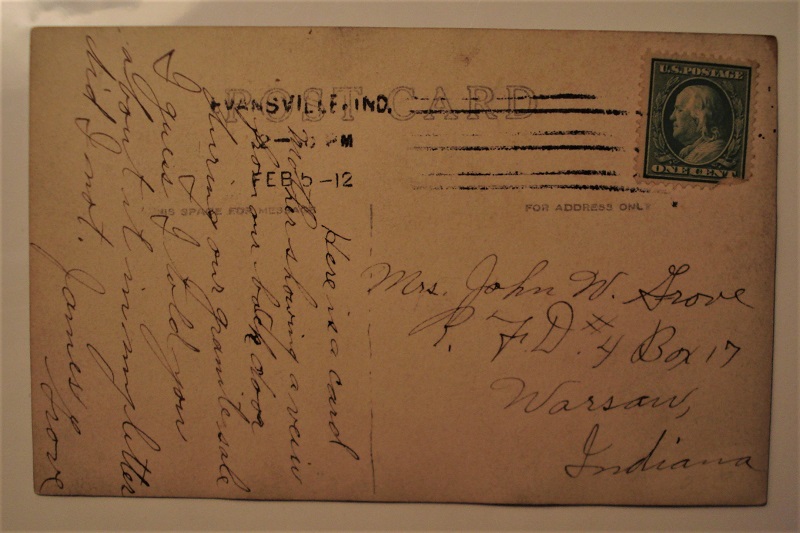 POST CARD
EVANSVILLE, IND.
PM
FEB 5 -12
U.S. POSTAGE
ONE CENT
SPACE FOR MESSAGE
FOR ADDRESS ONLY
Here is a card
Mother showing a vein
from our back door
during our granite sale
I guess I told you
about it in my letter
did I not.
James Grove
Mrs. John W. Grove
R. F. D. # 4 Box 17
Warsaw,
Indiana